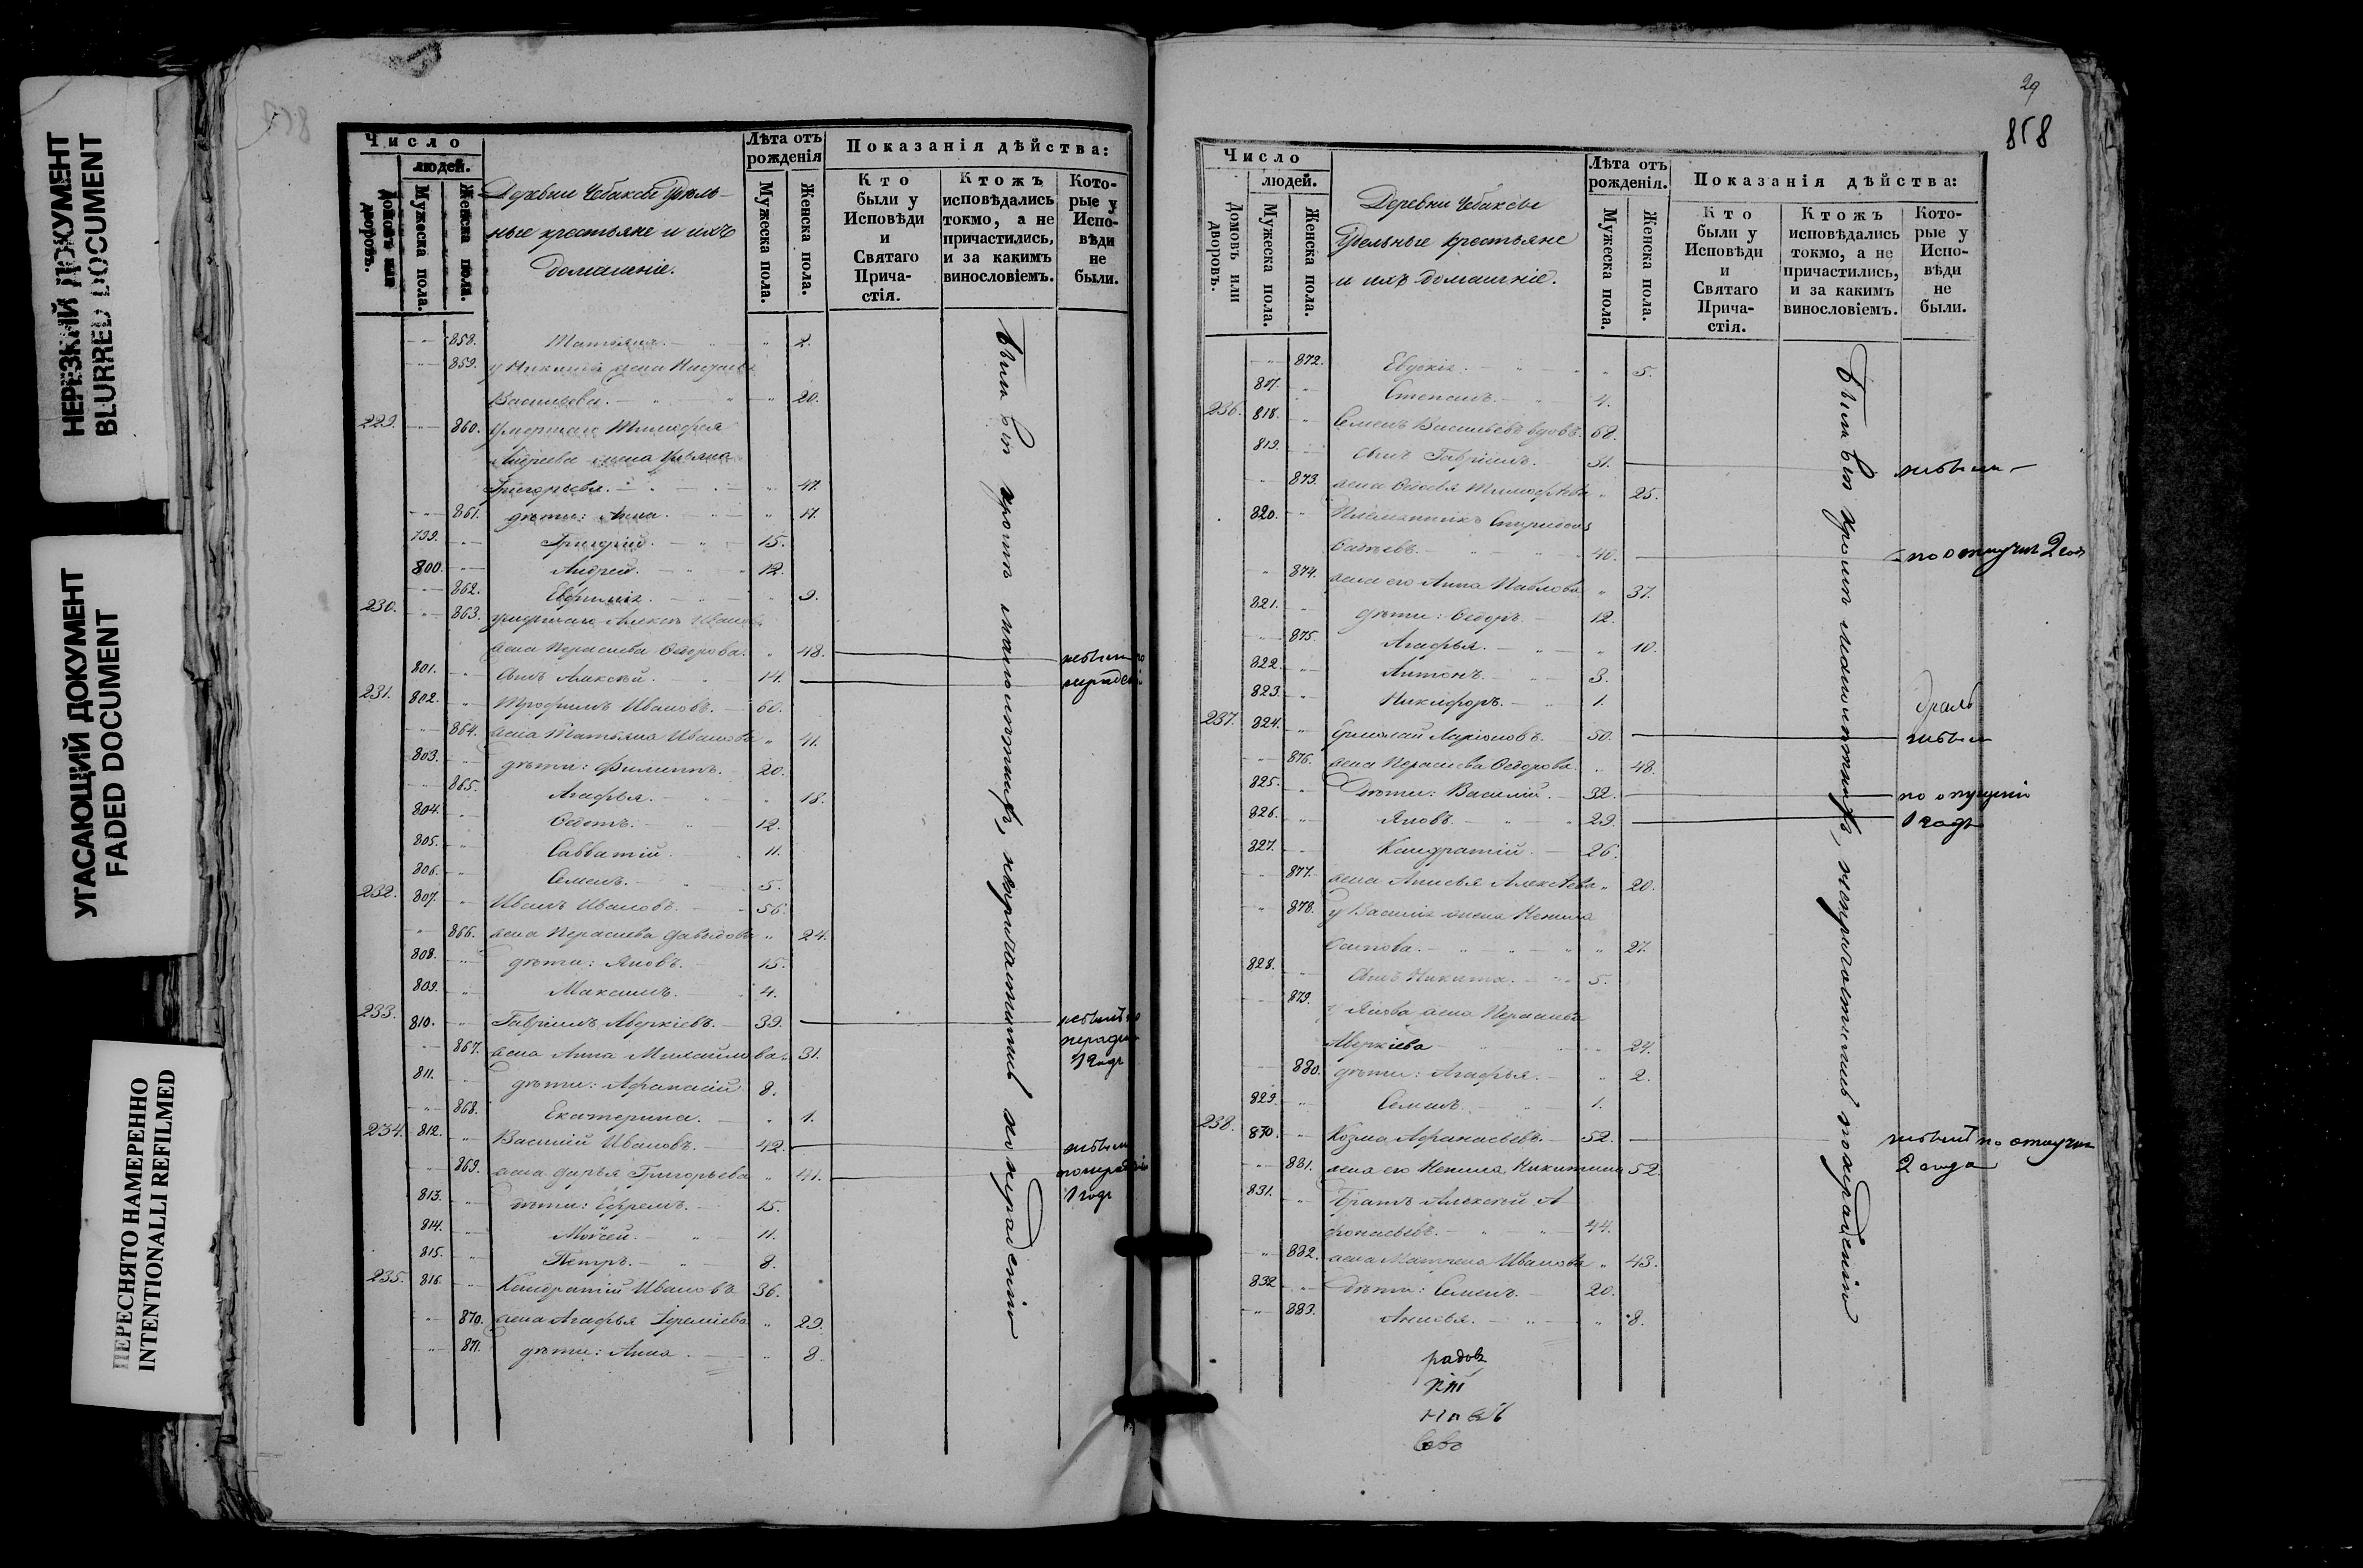 НЕРЕЗКИЙ ДОКУМЕНТ
BLURRED DOCUMENT
УГАСАЮЩИЙ ДОКУМЕНТ
FADED DOCUMENT
ПЕРЕСНЯТО НАМЕРЕННО
INTENTIONALLI REFILMED
Число
людей.
Домовъ или дворовъ.
Мужеска пола.
Женска пола.
Деревни Чебаксы Удѣль-
ные крестьяне и ихъ
домашніе.
Лѣта отъ рожденія
Мужеска пола.
Женска пола.
Показанія дѣйства:
Кто были у Исповѣди и Святаго Прича-стія.
Ктожъ исповѣдались токмо, а не причастились, и за какимъ винословіемъ.
Кото-рые у Испо-вѣди не были.
858. Татьяна. 2.
859. у жена
Васильева. 20.
229. 860. Умершаго Тимофея
Андреева жена Ульяна
Григорьева. 47.
861. дѣти: Анна. 17.
799. Григорій. 15.
800. Андрей. 12.
862. Евфимія. 9.
230. 863. умершаго
жена Параскева Ѳедорова. 48. небыли по
801. сынъ Алексѣй. 14. нерадѣнію
231. 802. Трофимъ Ивановъ. 60.
864. жена Татьяна Иванова 41.
803. дѣти: Филиппъ. 20.
865. Агафья. 18.
804. Ѳедотъ. 12.
805. Савватій. 11.
806. Семенъ. 5.
232. 807. Иванъ Ивановъ. 56.
866. жена Параскева Давыдова 24.
808. дѣти: Яковъ. 15.
809. Максимъ. 4.
233. 810. Гавріилъ Аверкіевъ. 39. небылъ по
867. жена Анна Михайлова. 31. нерадѣн
1 годъ
811. дѣти: Афанасій 8.
868. Екатерина. 1.
234. 812. Василій Ивановъ. 42. небыли
869. жена Дарья Григорьева 41. по нерадѣнію
813. дѣти: Ефремъ. 15. 1 годъ
814. Мойсей. 11.
815. Петръ. 8.
235. 816. Кондратій Ивановъ 36.
870. жена Агафья Іереміева 29.
871. дѣти: Анна. 8.
Были вси кромѣ малолѣтнихъ, непричастились по нерадѣнію
29
858
Число
людей.
Домовъ или дворовъ.
Мужеска пола.
Женска пола.
Деревни Чебаксы
Удельные крестьяне
и ихъ домашніе.
Лѣта отъ рожденія.
Мужеска пола.
Женска пола.
Показанія дѣйства:
Кто были у Исповѣди и Святаго Прича-стія.
Ктожъ исповѣдались токмо, а не причастились, и за какимъ винословіемъ.
Кото-рые у Испо-вѣди не были.
872. Евдокія. 5.
817. Степанъ. 4.
236. 818. Семенъ Васильевъ вдовъ. 68.
819. сынъ Гавріилъ. 31. небыли
873. жена Ѳедосья Тимофѣева 25.
820. Племянникъ Спиридонъ
40. по отлучки 2 года
874. жена его Анна Павлова 37.
821. дѣти: Ѳедоръ. 12.
875. Агафья. 10.
822. Антонъ. 3.
823. Никифоръ. 1.
237. 824. Ермолай Ларіоновъ. 50. небыли
876. жена Параскева Ѳедорова. 48.
825. Дѣти: Василій. 32.
826. Яковъ. 29. 1 годъ
827. Кондратій. 26.
877. жена Анисья Алексѣева 20.
878. у Василія жена Ксенія
27.
828. сынъ Никита. 5.
879. у Якова жена Параскева
Аверкіева 24.
880. дѣти: Агафья. 2.
829. Семенъ. 1.
238. 830. Козма Афанасьевъ. 52. небылъ по отлучки
881. жена его Никитина 52. 2 года
831. Братъ Алексѣй А
фонасьевъ. 44.
882. жена Матрена Иванова 43.
832. Дѣти: Семенъ. 20.
883. Анисья. 8.
Были вси кромѣ малолѣтнихъ, непричастились по нерадѣнію